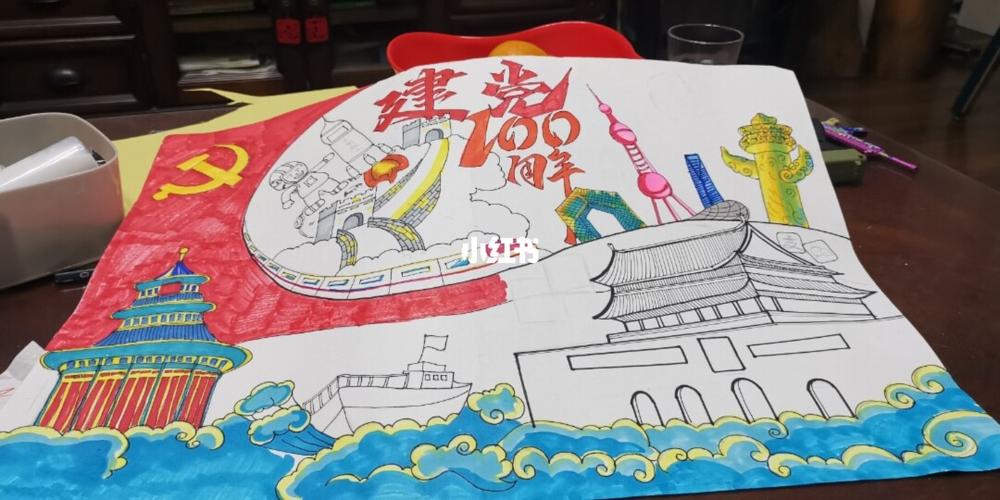 建党
100
周年
小红书